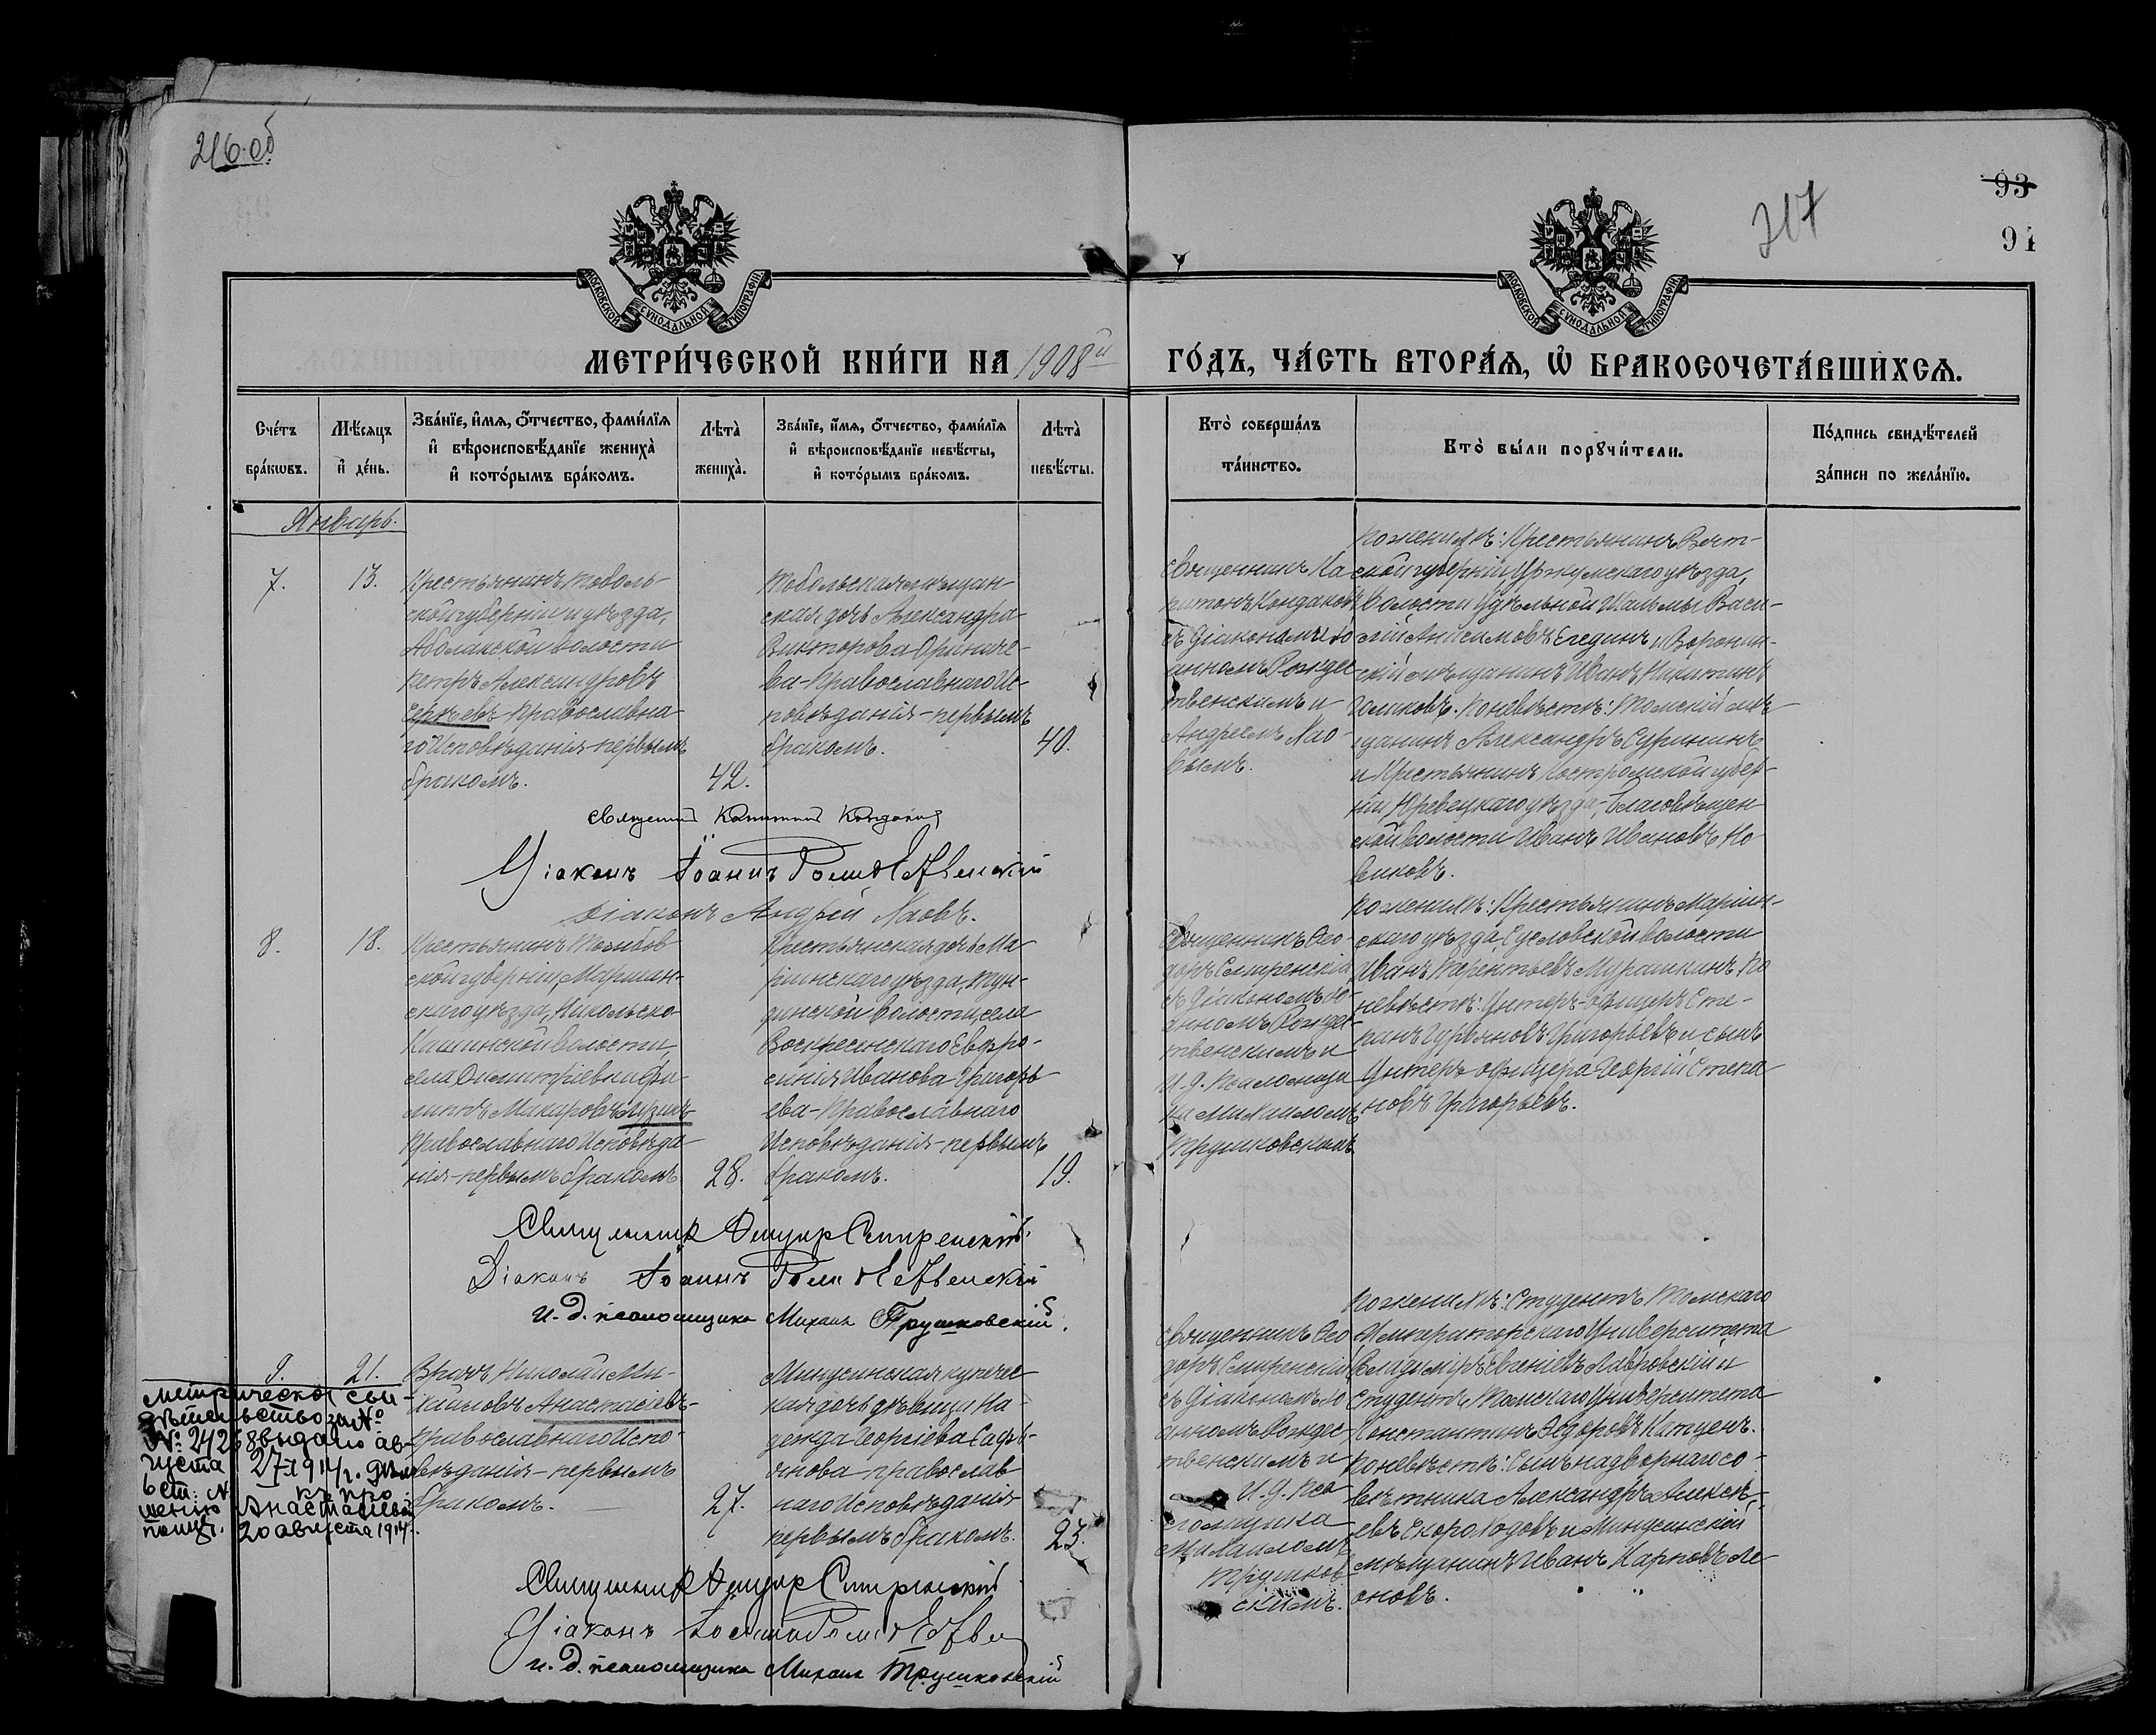 216 об
93
94
217
МОСКОВСКОЙ СУНОДАЛЬНОЙ ТИПОГРАФІИ
МОСКОВСКОЙ СУНОДАЛЬНОЙ ТИПОГРАФІИ
МЕТРИ́ЧЕСКОЙ КНИ́ГИ НА 1908й ГО́ДЪ, ЧА́СТЬ ВТОРА́Я, Ѡ БРАКОСОЧЕТА́ВШИХСЯ.
Сче́тъ
бра́кѡвъ.
Мѣ́сяцъ
и҆ де́нь.
Зва́нїе, и҆́мя, ѻ҆́тчество, фами́лїя
и҆ вѣроисповѣ́данїе жениха̀
и҆ кото́рымъ бра́комъ.
Лѣта̀
жениха̀.
Зва́нїе, и҆́мя, ѻ҆́тчество, фами́лїя
и҆ вѣроисповѣ́данїе невѣ́сты,
и҆ кото́рымъ бра́комъ.
Лѣта̀
невѣ́сты.
Кто̀ соверша́лъ
та́инство.
Кто̀ бы́ли порꙋчи́тели.
По́дпись свидѣ́телей
за́писи по жела́нїю.
Январь.
7.
13.
Крестьянинъ Тоболь-
ской губерніи и уѣзда,
Абалакской волости
Петръ Александровъ
Сергѣевъ - Православна-
го Исповѣданія - первымъ
бракомъ.
42.
Тобольская мѣщан-
ская дочь Александра
Викторова
ва - Православнаго Ис-
повѣданія - первымъ
бракомъ.
40.
Священникъ Ка
питонъ Кондаковъ
съ Діакономъ Іо
анномъ Рождес
твенскимъ и
Андреемъ
вымъ.
По женихѣ: Крестьянинъ Вят-
ской губерніи, Уржумскаго уѣзда,
волости Васи-
лій Анисимовъ и
скій мѣщанинъ Иванъ Никитинъ
По невѣстѣ: Томскій мѣ
щанинъ Александръ
и Крестьянинъ Костромской губер-
ніи, Юрьевецкаго уѣзда, Благовѣщен
ской волости Иванъ Ивановъ Но
виковъ.
Священникъ Капитонъ Кондаковъ
Діаконъ Іоаннъ Рождественскій
Діаконъ Андрей
8.
18.
Крестьянинъ Тамбов
ской губерніи,
скаго уѣзда, Никольско
волости,
села Димитріевки Фи-
липпъ Макаровъ
Православнаго Исповѣда-
нія - первымъ бракомъ
28.
Крестьянская дочь Ма-
ріинскаго уѣзда, Тун-
динской волости, села
Воскресенскаго Евфро-
синія Иванова Григорь
ева - Православнаго
Исповѣданія - первымъ
бракомъ.
19.
Священникъ Ѳео-
доръ Смиренскій
съ Діакономъ Іо-
анномъ Рождес-
твенскимъ и
И. д. Псаломщи
ка Михаиломъ
Трушковскимъ
По женихѣ: Крестьянинъ Маріин-
скаго уѣзда, Сусловской волости
Иванъ Терентьевъ Мурашкинъ. По
невѣстѣ: Унтеръ-офицеръ Сте-
панъ Григорьевъ и сынъ
Унтеръ офицера Георгій Степа
новъ Григорьевъ.
Священникъ Ѳеодоръ Смиренскій.
Діаконъ Іоаннъ Рождественскій
И. д. псаломщика Михаил Трушковскій.
9.
21.
Врачъ Николай Ми-
хайловъ Анастасіевъ-
Православнаго Испо-
вѣданія - первымъ
бракомъ.
27.
Минусинская купечес
кая дочь дѣвица На
дежда Георгіева Сафь-
янова - православ
наго Исповѣданія
первымъ бракомъ.
23.
Священникъ Ѳео
доръ Смиренскій
съ Діакономъ Іо
анномъ Рождес
твенскимъ и
И. д. Пса
ломщика
Михаиломъ
Трушков
скимъ.
По женихѣ: Студентъ Томскаго
Императорскаго Университета
Владиміръ Евгеніевъ Лавровскій и
Студентъ Томскаго Университета
Константинъ Ѳедоровъ
По невѣстѣ: Сынъ надворнаго со-
вѣтника Александръ Алексѣ-
евъ Скороходовъ и Минусинскій
мѣщанинъ Иванъ Карповъ Ле
оновъ.
Метрическое сви-
дѣтельство за №
выдано ав-
густа 27 1914 г.
къ про
шенію Анастасіева
20 августа 1914.
Священникъ Ѳеодоръ Смиренскій
Діаконъ Іоаннъ Рождествен
И. д. псаломщика Михаил Трушковскій